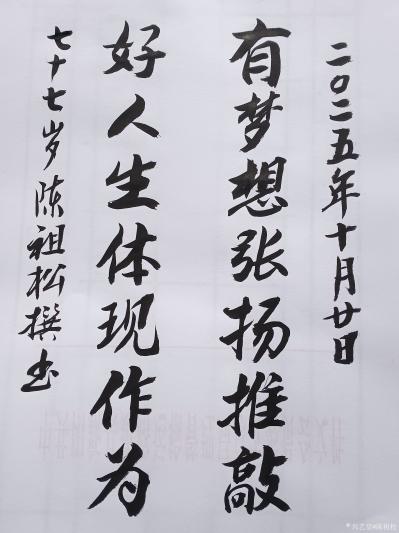 二〇二五年十月廿日
有梦想张扬推敲
好人生体现作为
七十七岁陈祖松撰书